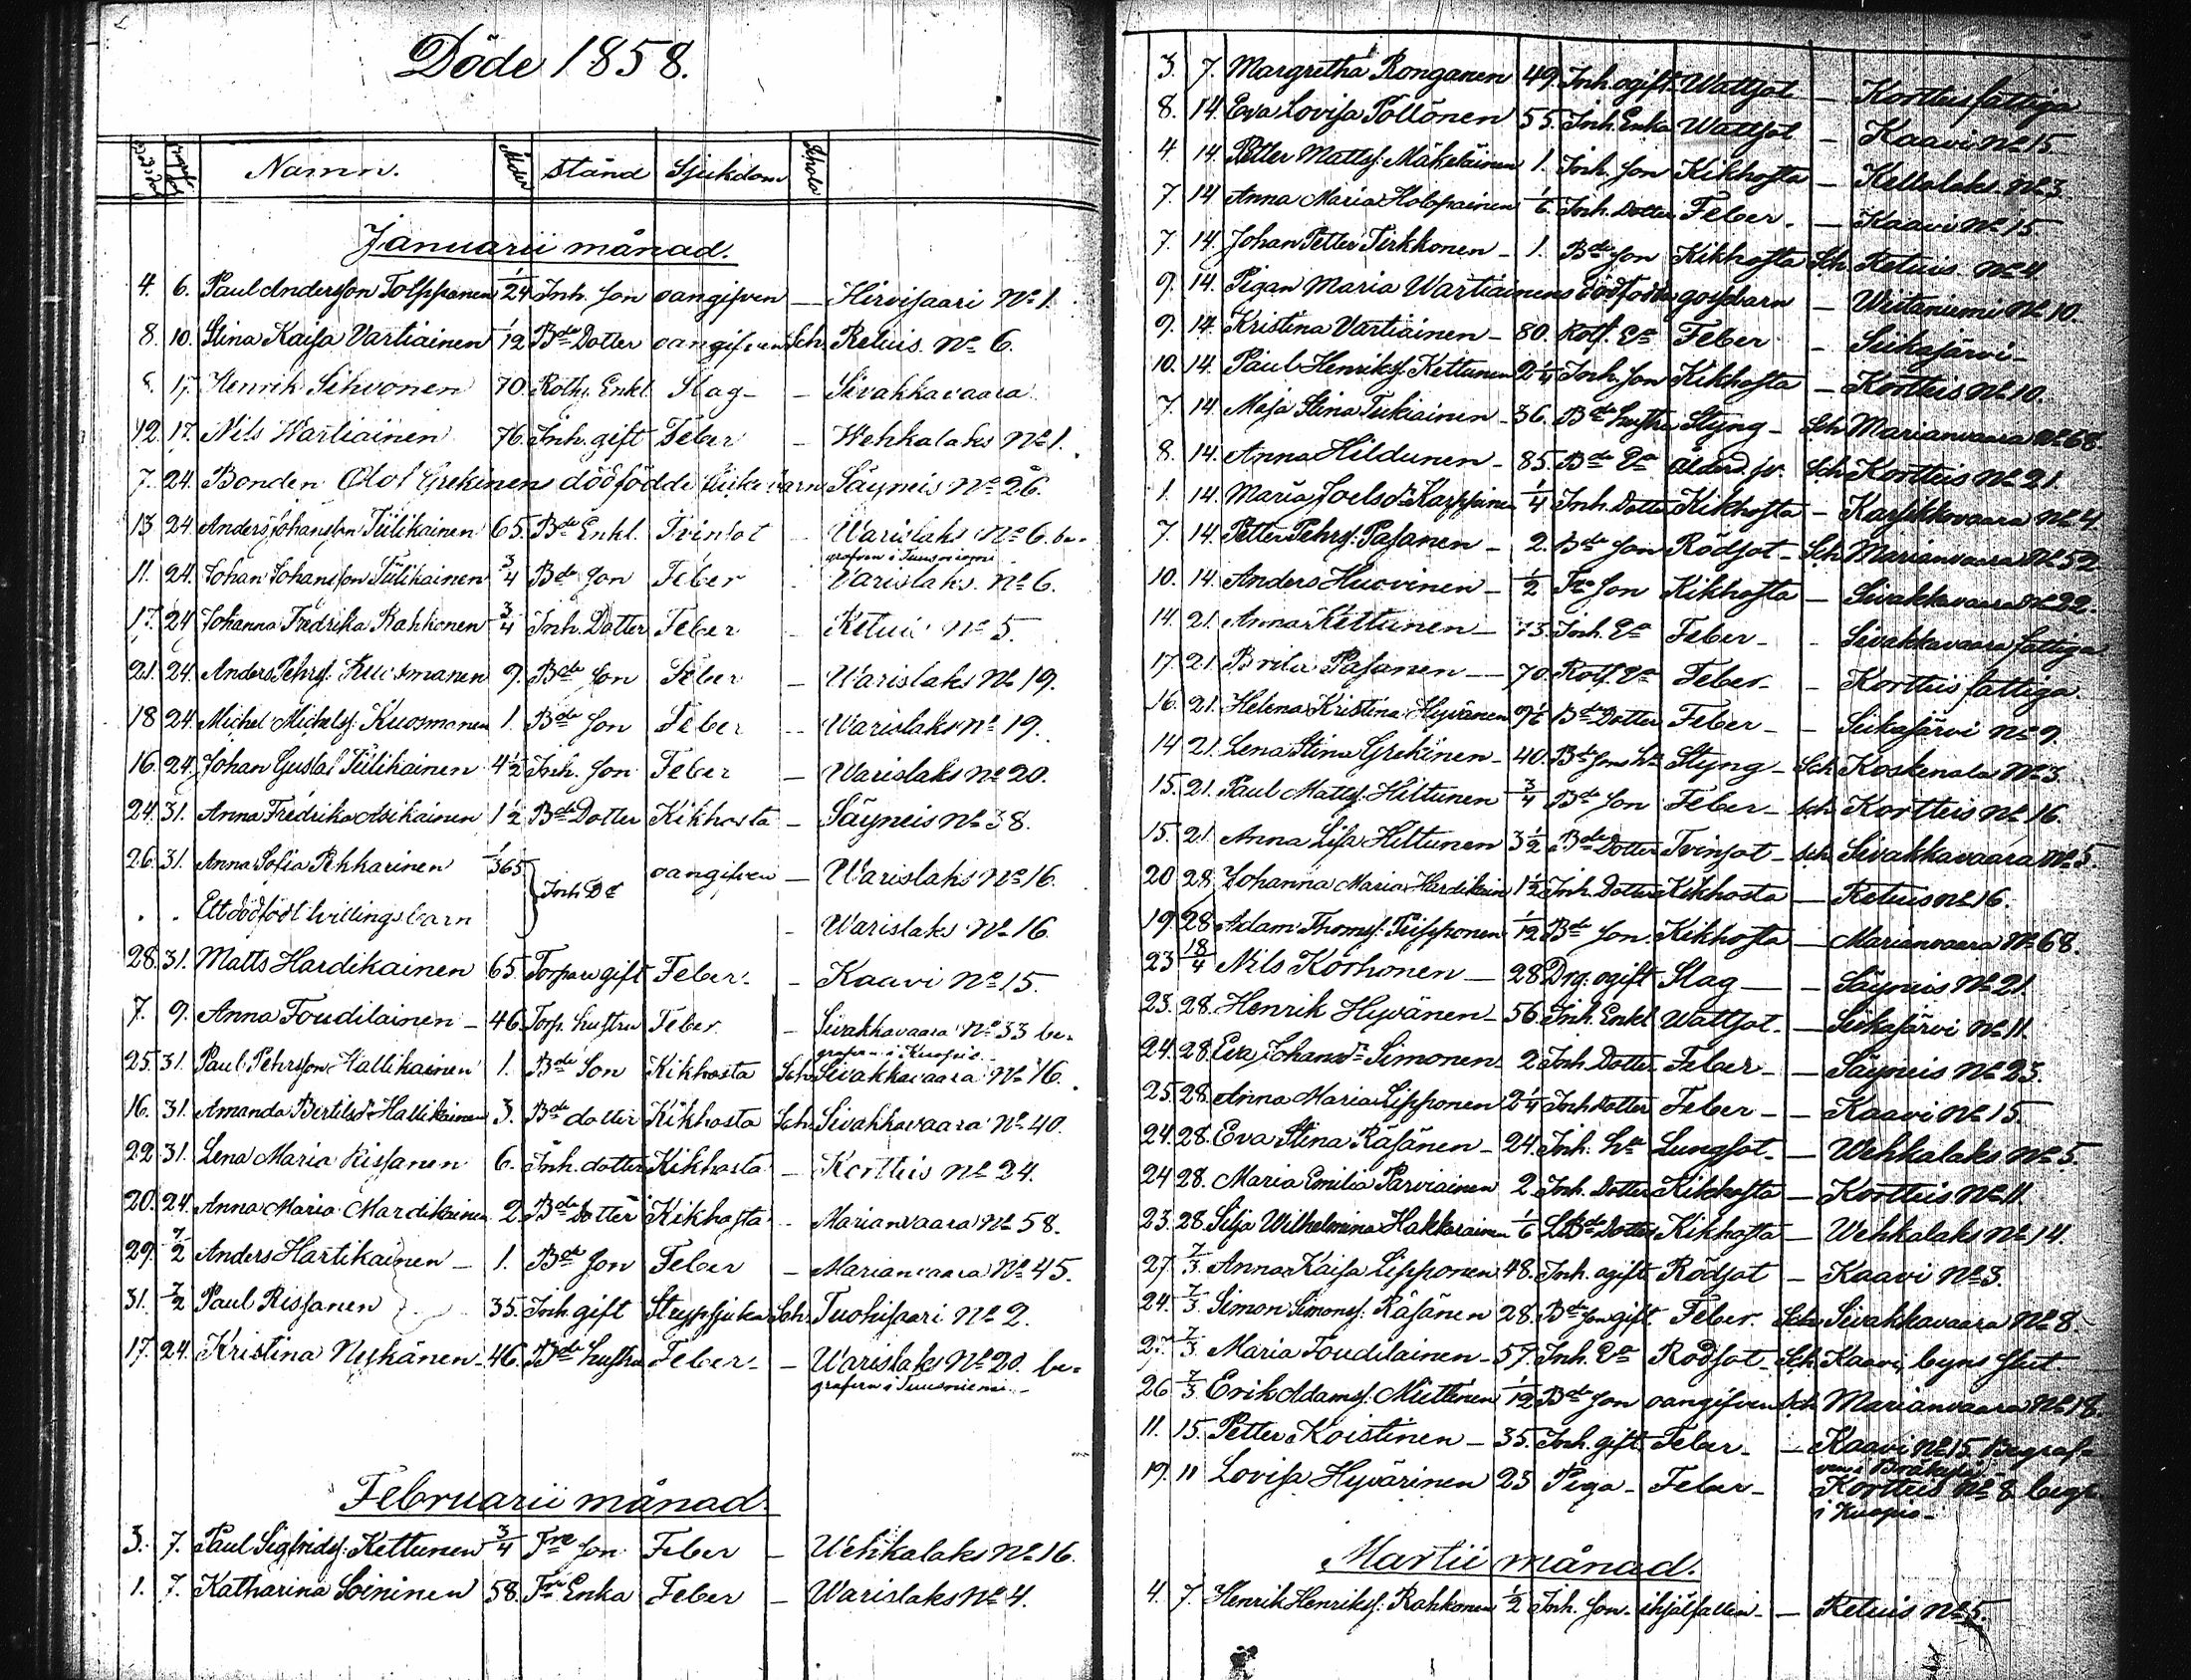 Döde 1858.
Namn. Ålder stånd Sjukdom Schola
Januarii månad.
4. 6. Paul Andersson Tolpponen 1/24 Inh. Son oangifven — Hirvisaari No 1.
8. 10. Stina Kaisa Vartiainen 1/2 Bde Dotter oangifven Sch. Retuis. No 6.
17. Henrik Sihvonen 70. Roth. Enkl. Slag — — Sivakkavaara
12. 17. Nils Wartiainen 76. Inh. gift Feber — Wehkalaks No 1.
7. 24. Bonden Olof Grekinens dödfödde barn Säyneis No 26.
13 24. Anders Johansson Tiilikainen 65. Bde Enkl. Tvinsot — Warislaks No 6. be-
grafven i Tuusniemi
11. 24. Johan Johansson Tiilikainen 3/4 Bde Son Feber — Varislaks. No 6.
17. 24 Johanna Fredrika Rahkonen 3/4 Inh. Dotter Feber — Retuis No 5.
21. 24. Anders Pehrs. Kuosmanen 9. Bde Son Feber — Warislaks No 19.
18 24. Michel Michels. Kuosmanen 1. Bde Son Feber — Warislaks No 19.
16. 24. Johan Gustaf Tiilikainen 4 1/2 Inh. Son Feber — Warislaks No 20.
24. 31. Anna Fredrika Asikainen 1 1/2 Bde Dotter Kikhosta — Säyneis No 38.
26. 31. Anna Sofia Pehkarinen 1/365 Inh. Dr oangifven — Warislaks No 16.
. . Ett dödfödt tvillingsbarn — Warislaks No 16.
28. 31. Matts Hardikainen 65. Torpare gift Feber. — Kaavi No 15.
7. 9. Anna Toudilainen — 46. Torp. hustru Feber — Sivakkavaara No 33 be-
grafven i Kuopio
25. 31. Paul Pehrsson Hallikainen 1. Bde Son Kikhosta Sch. Sivakkavaara No 16.
16. 31. Amanda Bertilsdr Hallikainen 3. Bde dotter Kikhosta Sch. Sivakkavaara No 40.
22. 31. Lena Maria Rissanen 6. Inh. dotter Kikhosta — Kortteis No 24.
20. 24. Anna Maria Hardikainen 2. Bde Dotter Kikhosta — Marianvaara No 58.
29. 7/2 Anders Hartikainen — 1. Bde Son Feber — Marianvaara No 45.
31. 7/2 Paul Rissanen 35. Inh. gift Strypsjuka Sch. Tuohisaari No 2.
17. 24. Kristina Nykänen — 46. Bde hustru Feber — — Warislaks No 20. be-
grafven i Tuusniemi —
Februarii månad.
3. 7. Paul Sigfrids. Kettunen 3/4 Tre Son Feber — Wehkalaks No 16.
1. 7. Katharina Soininen 58. Tre Enka Feber — Warislaks No 4.
3. 7. Margretha Ronganen 49. Inh. ogift Wattsot — Kortteis fattiga
8. 14. Eva Lovisa Pöllönen 55. Inh. Enka Wattsot — Kaavi No 15
4. 14. Petter Matts. Mäkeläinen 1. Inh. Son Kikhosta — Kellolaks No 3.
7. 14 Anna Maria Holopainen 1/6. Inh. Dotter Feber. — Kaavi No 15
7. 14. Johan Petter Pirkkonen — 1. Bde Son Kikhosta Sch. Retuis No 4
9. 14. Pigan Maria Wartiainens dödfödda gossbarn — Wiitaniemi No 10.
9. 14. Kristina Vartiainen — 80. Rotf. Ea Feber — Siikajärvi —
10. 14. Paul Henriks. Kettunen 2 1/4 Inh. Son Kikhosta — Kortteis No 10.
7. 14. Maja Stina Tiikiainen — 36. Bde hustru Styng — Sch. Marianvaara No 68.
8. 14. Anna Hildunen — 85. Bde Ea Ålderd. sv. Sch. Kortteis No 21.
1. 14. Maria Joelsdr Karppinen 1/4 Inh. Dotter Kikhosta — Karsikkovaara No 4.
7. 14. Petter Pehrs. Pasanen — 2. Bde Son Rödsot — Sch. Marianvaara No 52.
10. 14. Anders Huovinen — 1/2 Tre Son Kikhosta — Sivakkavaara No 22.
14. 21. Anna Kettunen — 73. Inh. Ea Feber — — Sivakkavaara fattiga
17. 21. Brita Pasanen — 70. Rotf. Ea Feber — — Kortteis fattiga
16. 21. Helena Kristina Hyvänen 9 1/2 Bde Dotter Feber — — Siikajärvi No 9.
14 21. Lena Stina Grekinen — 40. Bde Sons ha Styng — Sch. Koskenala No 3.
15. 21. Paul Matts. Hiltunen 3/4 Bde Son Feber — Sch. Kortteis No 16.
15. 21. Anna Lisa Hiltunen 3 1/2 Bde Dotter Tvinsot — Sch. Sivakkavaara No 5.
20 28. Johanna Maria Hardikain 1 1/2 Inh. Dotter Kikhosta — Retuis No 16.
19. 28 Adam Thoms. Piipponen 1/12 Bde Son. Kikhosta — Marianvaara No 68.
23 18/4 Nils Korhonen — 28 Drg. ogift Slag — — Säyneis No 21
23. 28. Henrik Hyvänen — 56. Inh. Enkl. Wattsot. — Siikajärvi No 11.
24. 28. Eva Johansdr Simonen 2 Inh. Dotter Feber — — Säyneis No 23.
25. 28. Anna Maria Lipponen 2 1/4 Inh. Dotter Feber — — Kaavi No 15.
24. 28. Eva Stina Räsänen — 24. Inh. ha Lungsot. — Wehkalaks No 5.
24 28. Maria Emilia Parviainen 2 Inh. Dotter Kikhosta — Kortteis No 11
23. 28. Silja Wilhelmina Hakkarainen 1/6 LBde Dotter Kikhosta — Wehkalaks No 14.
27. 7/3. Anna Kaisa Lipponen 48. Inh. ogift Rödsot — Kaavi No 3.
24. 7/3. Simon Simons. Räsänen 28. Bde Son gift Feber. Sch. Sivakkavaara No 8.
27. 7/3. Maria Toudilainen — 57. Inh. Ea Rödsot — Sch. Kaavi byns slut
26 7/3. Erik Adams. Miettinen 1/12 Bde Son oangifven Sch. Marianvaara No 18.
11. 15. Petter Koistinen — 35. Inh. gift Feber — — Kaavi No 15 Begraf-
ven i
19. 11 Lovisa Hyvärinen 23 Piga — Feber — Kortteis No 8 begr.
i Kuopio —
Martii månad.
4. 7. Henrik Henriks. Rahkonen 1/2 Inh. Son — ihjälfallen — — Retuis No 5.